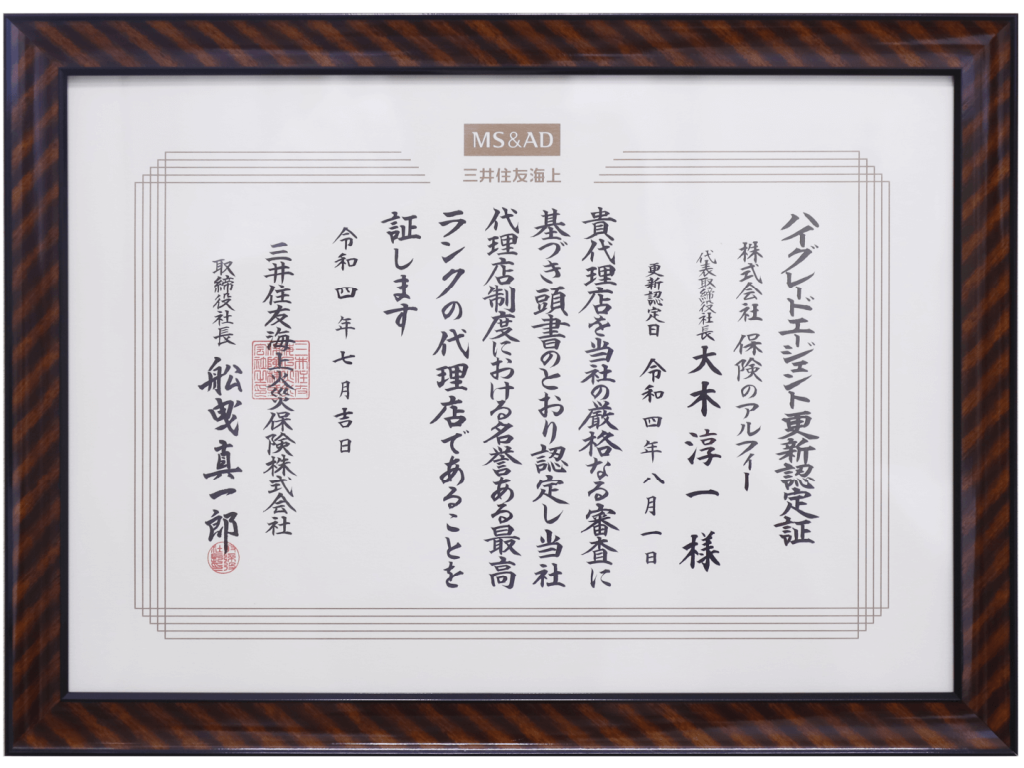 MS&AD
三井住友海上
ハイグレードエージェント更新認定証
株式会社 保険のアルフィー
代表取締役社長 大木淳一様
更新認定日 令和四年八月一日
貴代理店を当社の厳格なる審査に
基づき頭書のとおり認定し当社
代理店制度における名誉ある最高
ランクの代理店であることを
証します
令和四年七月吉日
三井住友海上火災保険株式会社
取締役社長 舩曵真一郎